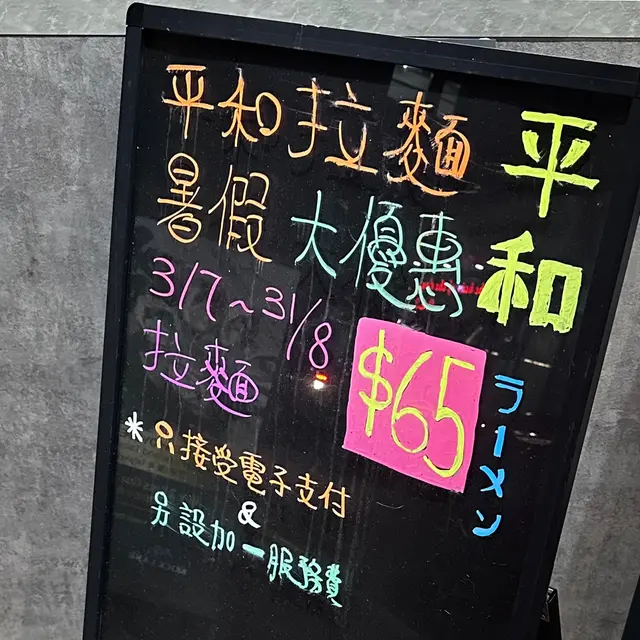 平和拉麵
暑假大優惠
3/7~31/8
拉麵
$65
*只接受電子支付
&
另設加一服務費
平和
ラーメン